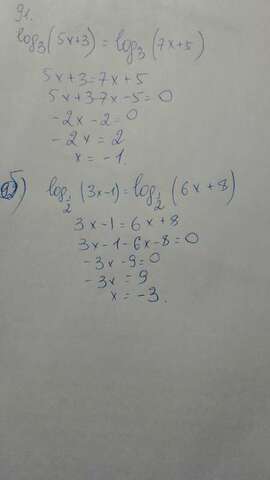 91.
log₃(5x+3) = log₃(7x+5)
5x+3=7x+5
5x+3-7x-5=0
-2x-2=0
-2x=2
x=-1.
б) log½ (3x-1)=log½ (6x+8)
3x-1=6x+8
3x-1-6x-8=0
-3x-9=0
-3x=9
x=-3.